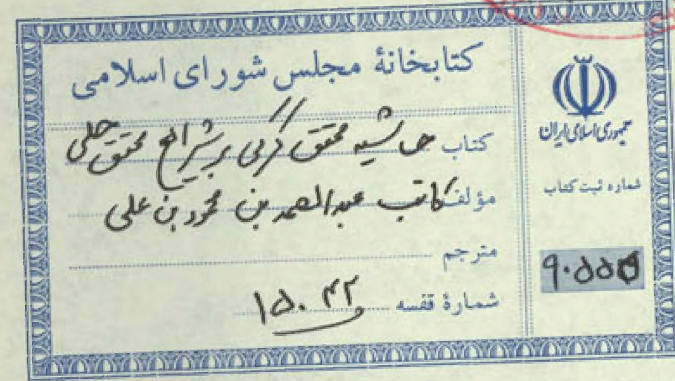 کتابخانهٔ مجلس شورای اسلامی
کتاب حاشیه محقق کرکی بر شرایع محقق حلی
مؤلف کاتب عبدالصمد بن محمود بن علی
مترجم
شمارهٔ قفسه ۱۵۰۴۲
جمهوری اسلامی ایران
شماره ثبت کتاب
۹۰۵۵۵